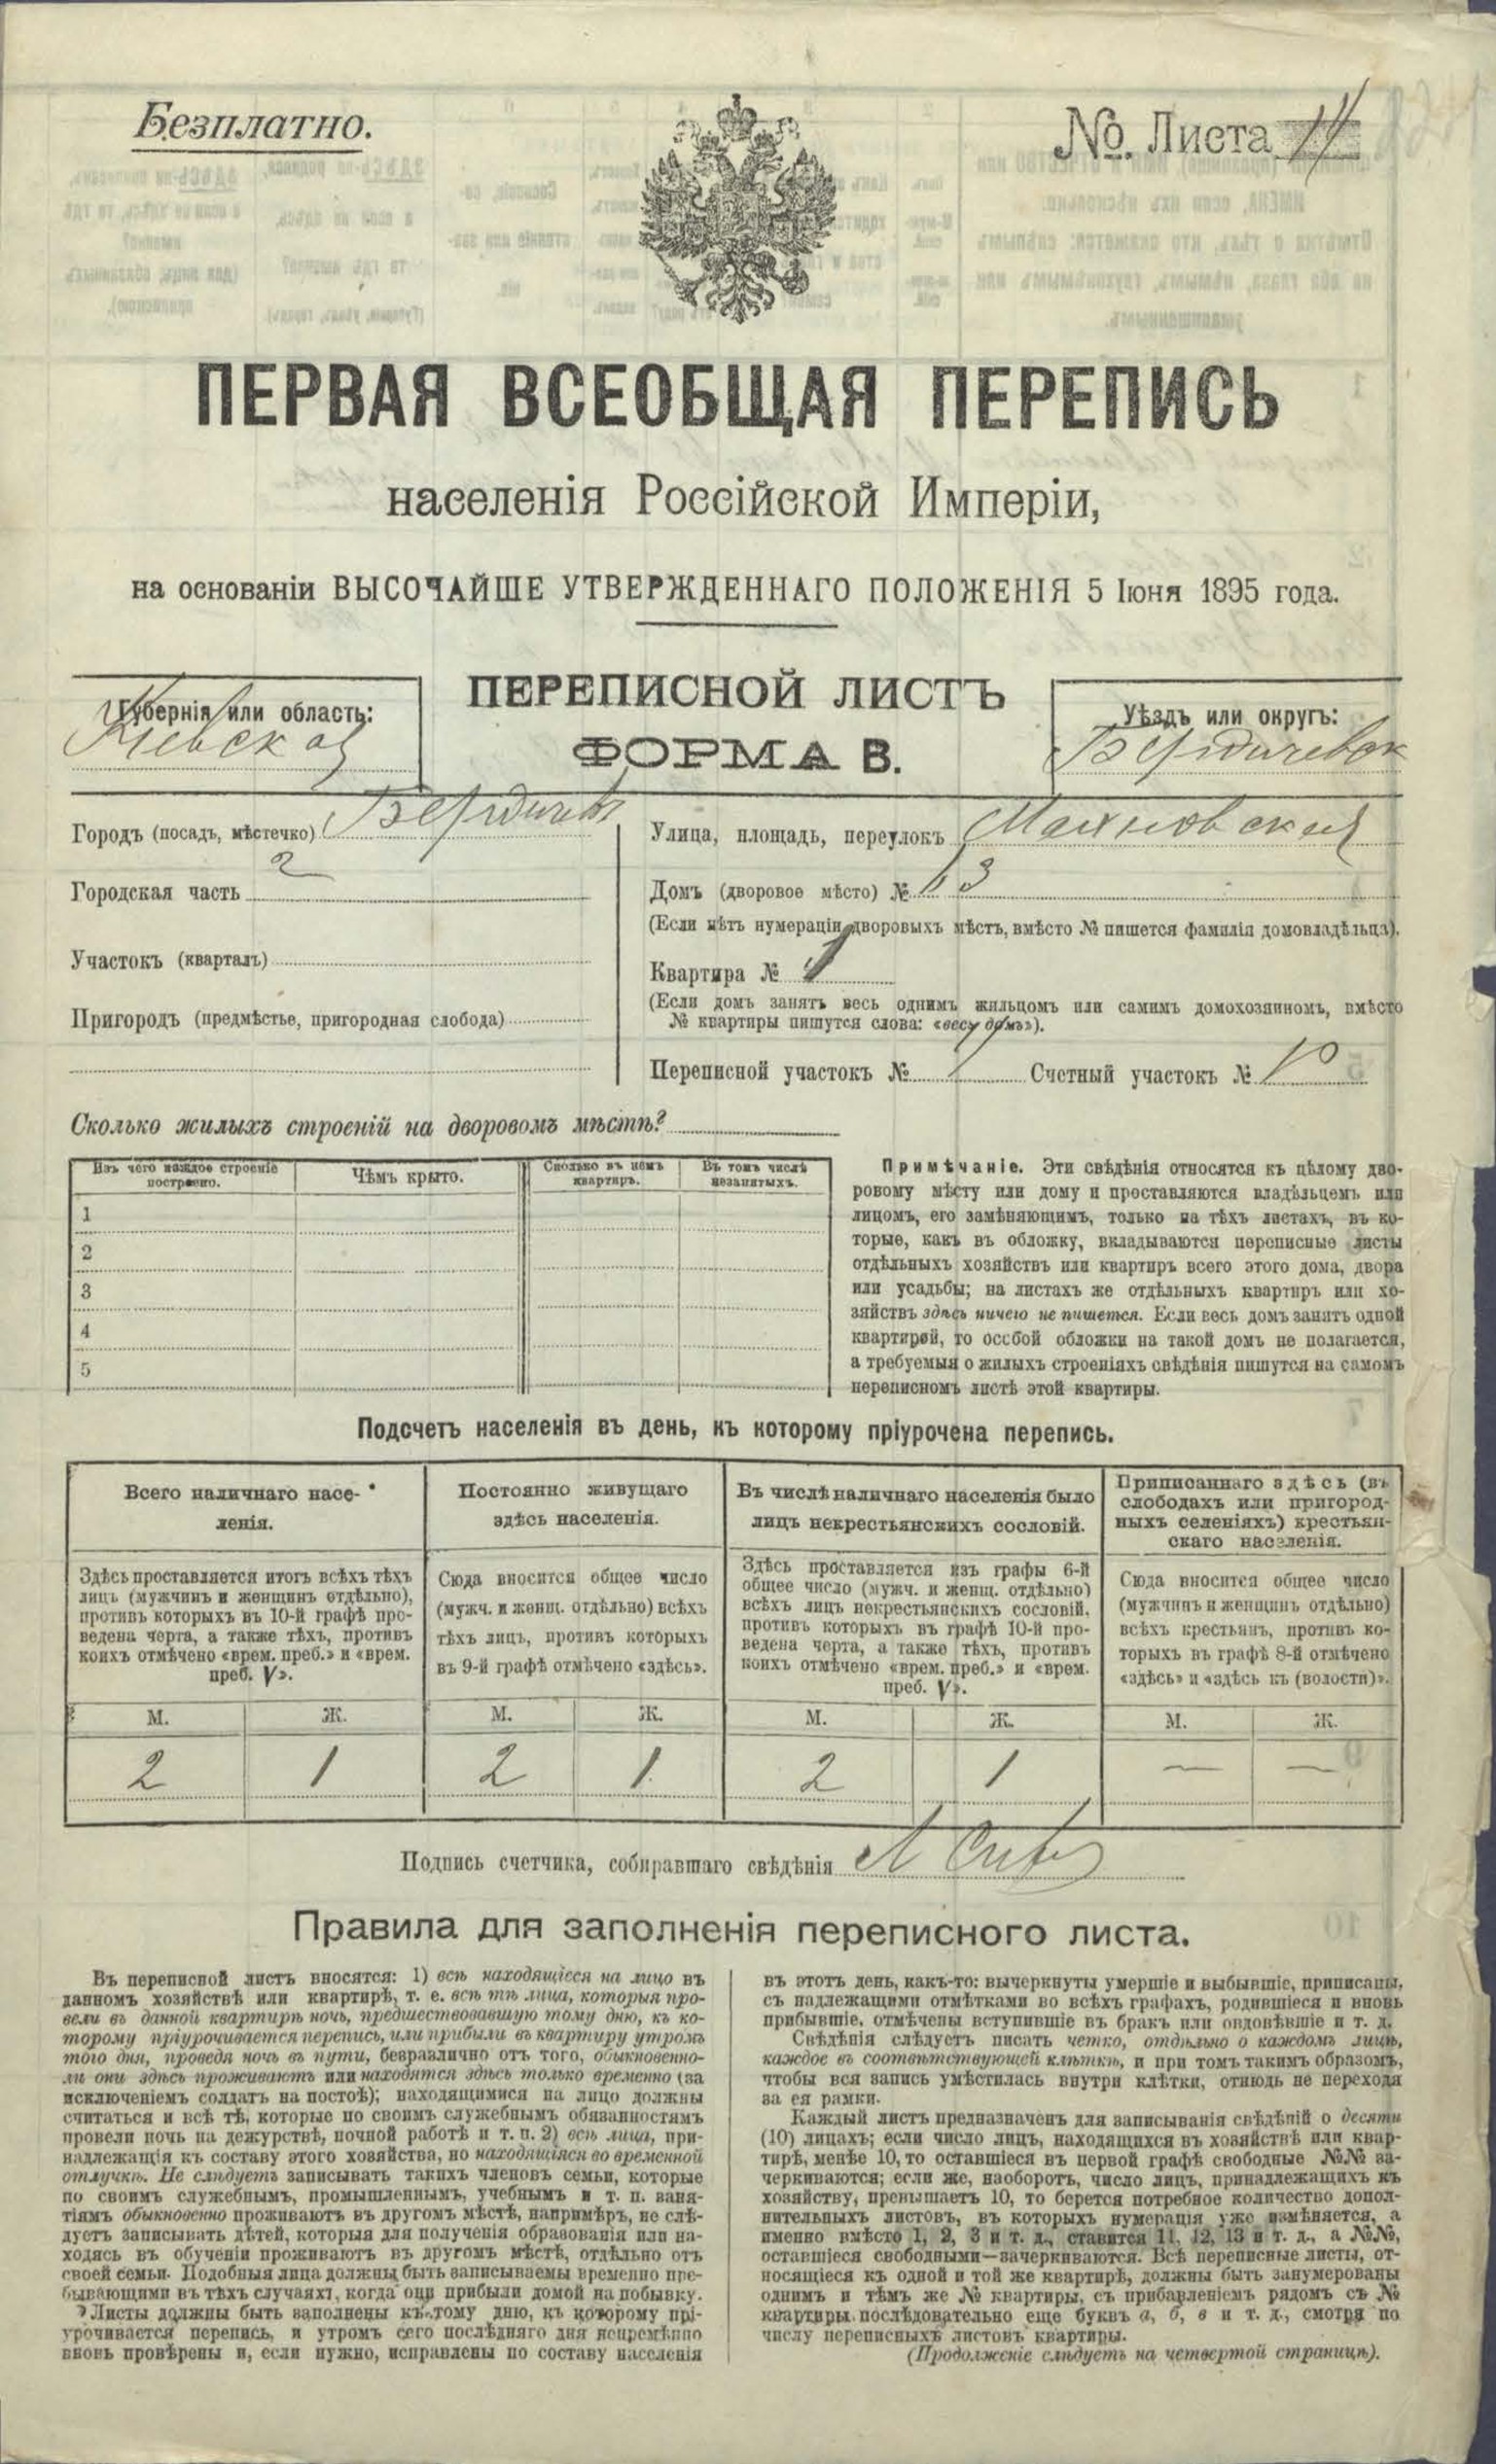 Безплатно.
№. Листа 11
ПЕРВАЯ ВСЕОБЩАЯ ПЕРЕПИСЬ
населенія Россійской Имперіи,
на основаніи ВЫСОЧАЙШЕ УТВЕРЖДЕННАГО ПОЛОЖЕНІЯ 5 Іюня 1895 года.
ПЕРЕПИСНОЙ ЛИСТЪ
ФОРМА В.
Губернія или область:
Кіевская
Уѣздъ или округъ:
Бердичевск
Городъ (посадъ, мѣстечко) Бердичевъ
Городская часть 2
Участокъ (кварталъ)
Пригородъ (предмѣстье, пригородная слобода)
Улица, площадь, переулокъ Махновская
Домъ (дворовое мѣсто) № 13
(Если нѣтъ нумераціи дворовыхъ мѣстъ, вмѣсто № пишется фамилія домовладѣльца).
Квартира №
(Если домъ занятъ весь однимъ жильцомъ или самимъ домохозяиномъ, вмѣсто
№ квартиры пишутся слова: «весь домъ»).
Переписной участокъ № 1 Счетный участокъ № 10
Сколько жилыхъ строеній на дворовомъ мѣстѣ?
Изъ чего каждое строеніе
построено.
Чѣмъ крыто.
Сколько въ немъ
квартиръ.
Въ томъ числѣ
незанятыхъ.
1
2
3
4
5
Примѣчаніе. Эти свѣдѣнія относятся къ цѣлому дво-
ровому мѣсту или дому и проставляются владѣльцемъ или
лицомъ, его замѣняющимъ, только на тѣхъ листахъ, въ ко-
торые, какъ въ обложку, вкладываются переписные листы
отдѣльныхъ хозяйствъ или квартиръ всего этого дома, двора
или усадьбы; на листахъ же отдѣльныхъ квартиръ или хо-
зяйствъ здѣсь ничего не пишется. Если весь домъ занятъ одной
квартирой, то особой обложки на такой домъ не полагается,
а требуемыя о жилыхъ строеніяхъ свѣдѣнія пишутся на самомъ
переписномъ листѣ этой квартиры.
Подсчетъ населенія въ день, къ которому пріурочена перепись.
Всего наличнаго насе-
ленія.
Постоянно живущаго
здѣсь населенія.
Въ числѣ наличнаго населенія было
лицъ некрестьянскихъ сословій.
Приписаннаго здѣсь (въ
слободахъ или пригород-
ныхъ селеніяхъ) крестьян-
скаго населенія.
Здѣсь проставляется итогъ всѣхъ тѣхъ
лицъ (мужчинъ и женщинъ отдѣльно),
противъ которыхъ въ 10-й графѣ про-
ведена черта, а также тѣхъ, противъ
коихъ отмѣчено «врем. преб.» и «врем.
преб. V».
Сюда вносится общее число
(мужч. и женщ. отдѣльно) всѣхъ
тѣхъ лицъ, противъ которыхъ
въ 9-й графѣ отмѣчено «здѣсь».
Здѣсь проставляется изъ графы 6-й
общее число (мужч. и женщ. отдѣльно)
всѣхъ лицъ некрестьянскихъ сословій,
противъ которыхъ въ графѣ 10-й про-
ведена черта, а также тѣхъ, противъ
коихъ отмѣчено «врем. преб.» и «врем.
преб. V».
Сюда вносится общее число
(мужчинъ и женщинъ отдѣльно)
всѣхъ крестьянъ, противъ ко-
торыхъ въ графѣ 8-й отмѣчено
«здѣсь» и «здѣсь къ (волости)».
М. Ж. М. Ж. М. Ж. М. Ж.
2 1 2 1 2 1 — —
Подпись счетчика, собиравшаго свѣдѣнія
Правила для заполненія переписного листа.
Въ переписной листъ вносятся: 1) всѣ находящіеся на лицо въ
данномъ хозяйствѣ или квартирѣ, т. е. всѣ тѣ лица, которыя про-
вели въ данной квартирѣ ночь, предшествовавшую тому дню, къ ко-
торому пріурочивается перепись, или прибыли въ квартиру утромъ
того дня, проведя ночь въ пути, безразлично отъ того, обыкновенно-
ли они здѣсь проживаютъ или находятся здѣсь только временно (за
исключеніемъ солдатъ на постоѣ); находящимися на лицо должны
считаться и всѣ тѣ, которые по своимъ служебнымъ обязанностямъ
провели ночь на дежурствѣ, ночной работѣ и т. п. 2) всѣ лица, при-
надлежащія къ составу этого хозяйства, но находящіяся во временной
отлучкѣ. Не слѣдуетъ записывать такихъ членовъ семьи, которые
по своимъ служебнымъ, промышленнымъ, учебнымъ и т. п. заня-
тіямъ обыкновенно проживаютъ въ другомъ мѣстѣ, напримѣръ, не слѣ-
дуетъ записывать дѣтей, которыя для полученія образованія или на-
ходясь въ обученіи проживаютъ въ другомъ мѣстѣ, отдѣльно отъ
своей семьи. Подобныя лица должны быть записываемы временно пре-
бывающими въ тѣхъ случаяхъ, когда они прибыли домой на побывку.
Листы должны быть заполнены къ тому дню, къ которому прі-
урочивается перепись, и утромъ сего послѣдняго дня непремѣнно
вновь провѣрены и, если нужно, исправлены по составу населенія
въ этотъ день, какъ-то: вычеркнуты умершіе и выбывшіе, приписаны,
съ надлежащими отмѣтками во всѣхъ графахъ, родившіеся и вновь
прибывшіе, отмѣчены вступившіе въ бракъ или овдовѣвшіе и т. д.
Свѣдѣнія слѣдуетъ писать четко, отдѣльно о каждомъ лицѣ,
каждое въ соотвѣтствующей клѣткѣ, и при томъ такимъ образомъ,
чтобы вся запись умѣстилась внутри клѣтки, отнюдь не переходя
за ея рамки.
Каждый листъ предназначенъ для записыванія свѣдѣній о десяти
(10) лицахъ; если число лицъ, находящихся въ хозяйствѣ или квар-
тирѣ, менѣе 10, то оставшіеся въ первой графѣ свободные №№ за-
черкиваются; если же, наоборотъ, число лицъ, принадлежащихъ къ
хозяйству, превышаетъ 10, то берется потребное количество допол-
нительныхъ листовъ, въ которыхъ нумерація уже измѣняется, а
именно вмѣсто 1, 2, 3 и т. д., ставится 11, 12, 13 и т. д., а №№,
оставшіеся свободными—зачеркиваются. Всѣ переписные листы, от-
носящіеся къ одной и той же квартирѣ, должны быть занумерованы
однимъ и тѣмъ же № квартиры, съ прибавленіемъ рядомъ съ №
квартиры послѣдовательно еще буквъ а, б, в и т. д., смотря по
числу переписныхъ листовъ квартиры.
(Продолженіе слѣдуетъ на четвертой страницѣ).